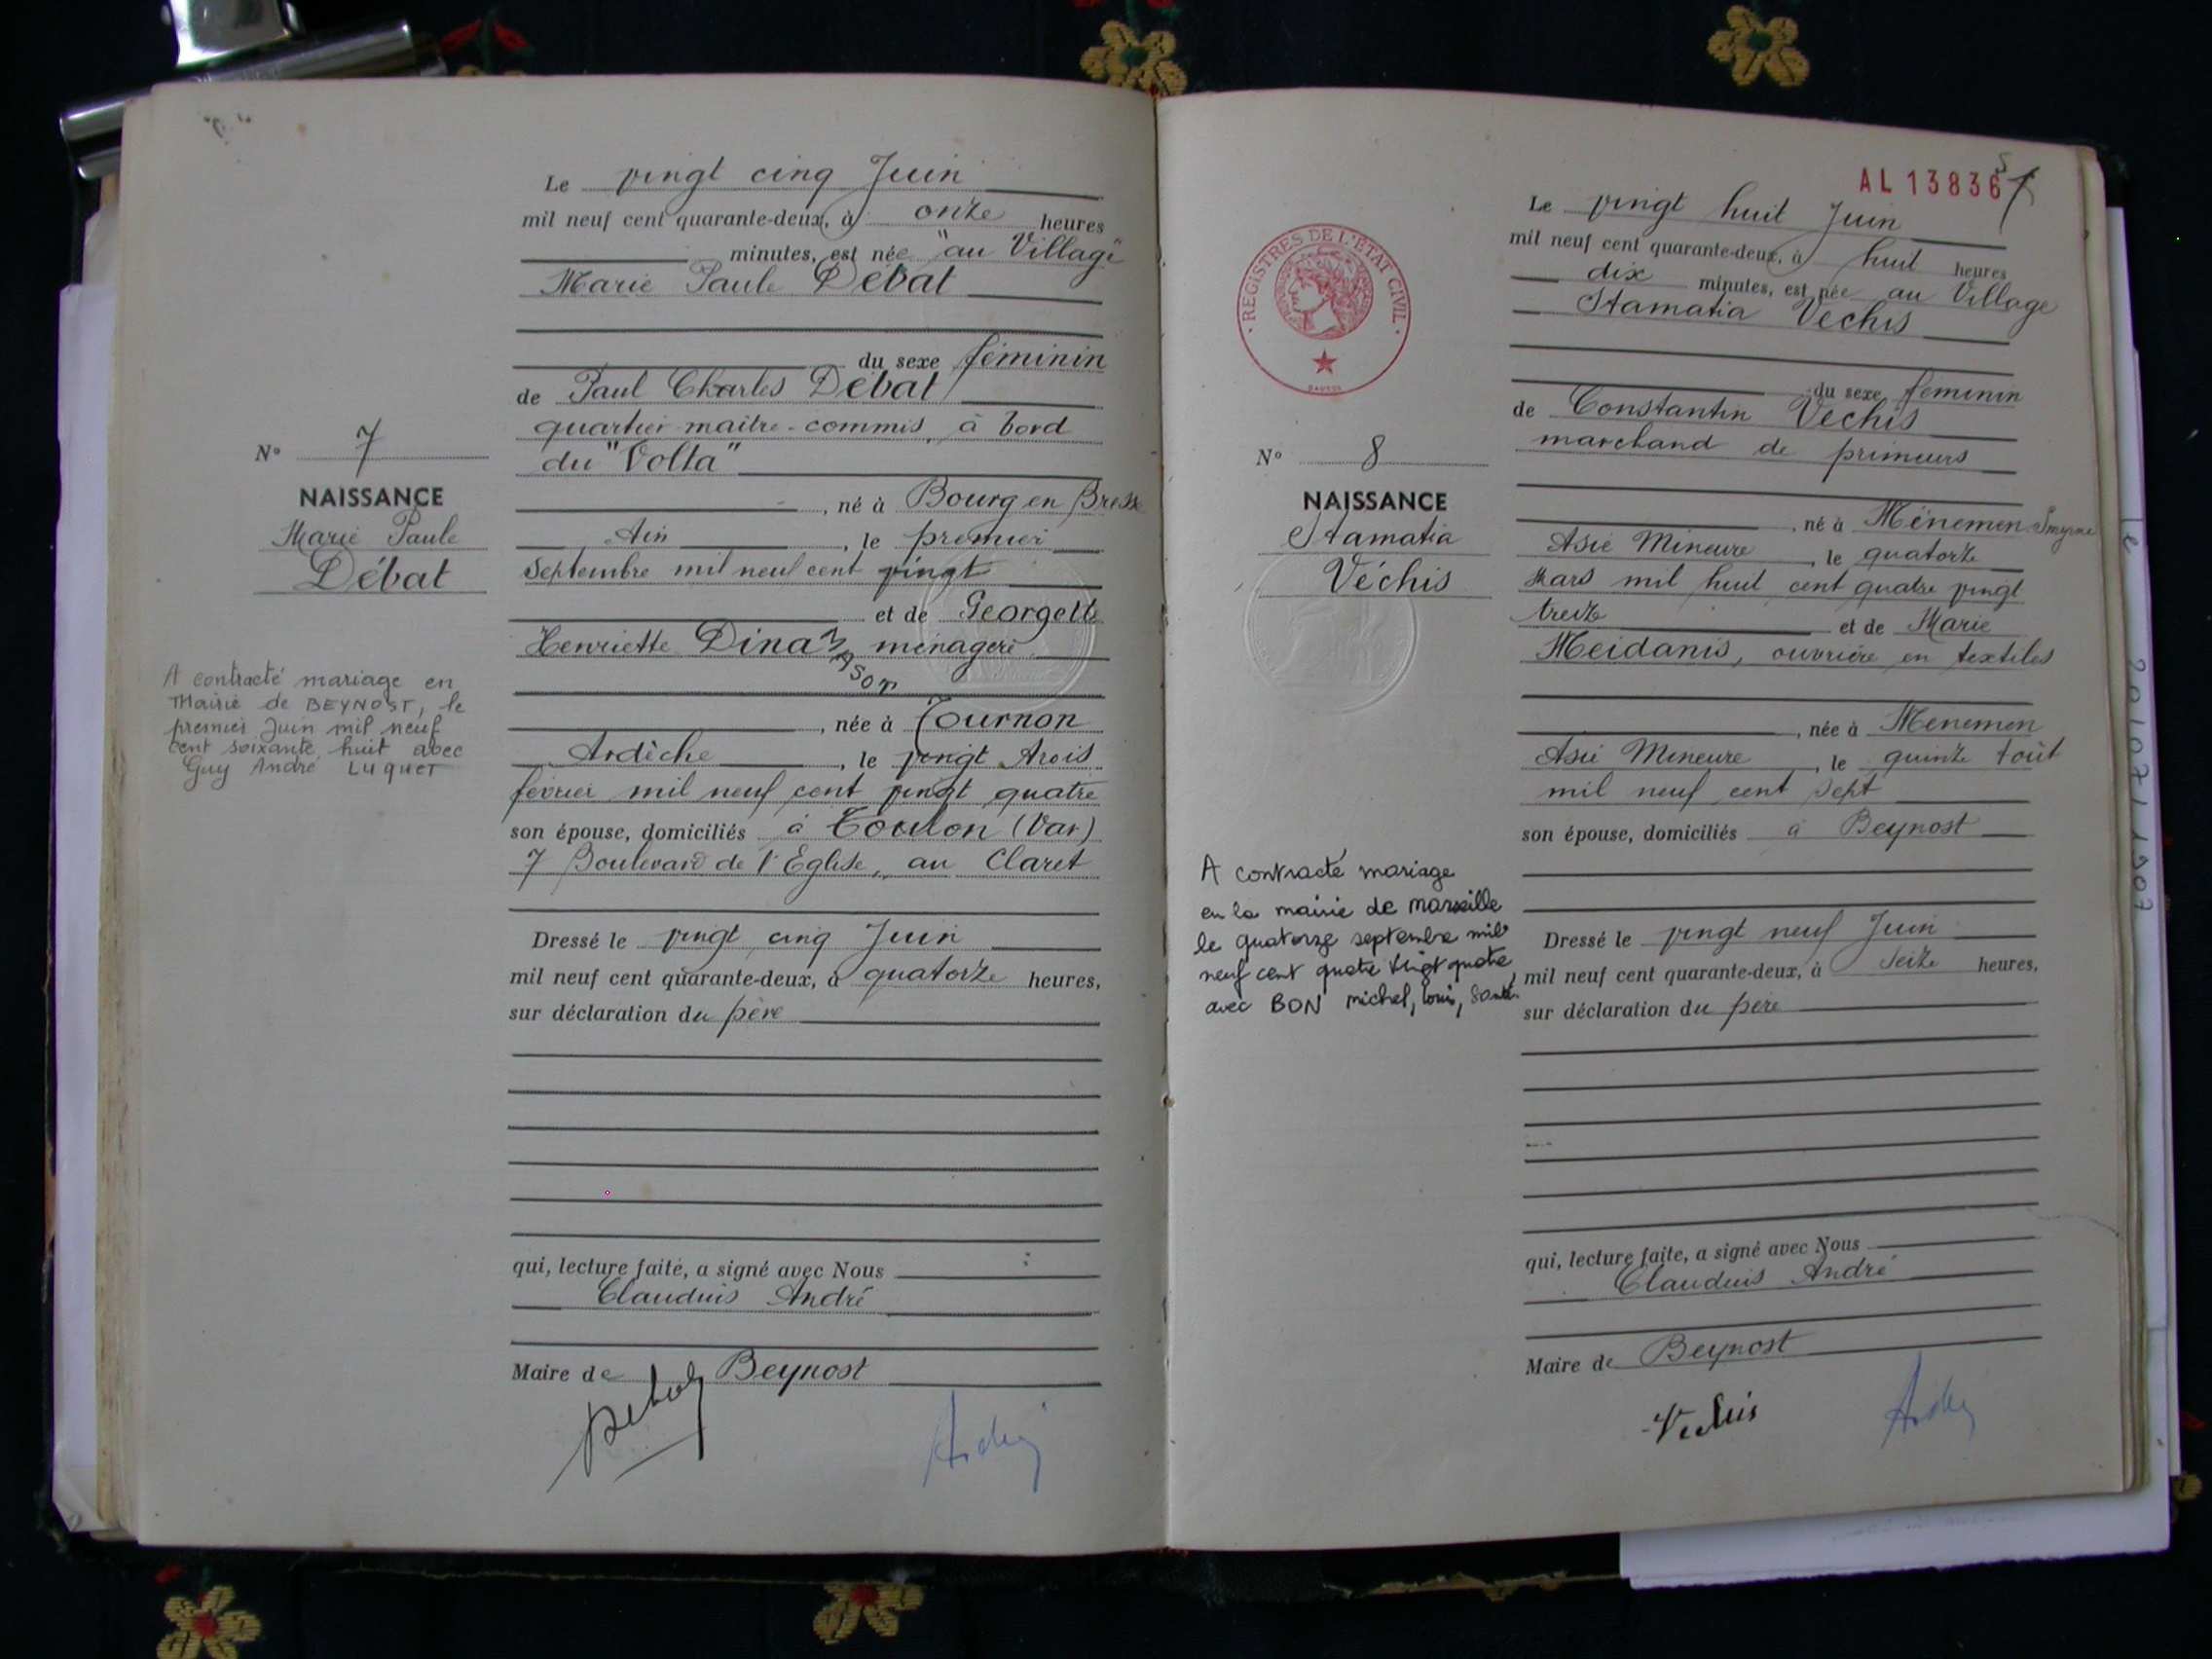 Le vingt cinq Juin
mil neuf cent quarante-deux, à onze heures
minutes, est née "au Village"
Marie Paule Débat
du sexe féminin
de Paul Charles Débat
quartier-maître-commis, à bord
du "Volta"
, né à Bourg en Bresse
Ain, le premier
Septembre mil neuf cent vingt
et de Georgette
Henriette Dina ménagère
, née à Tournon
Ardèche, le vingt trois
février mil neuf cent vingt quatre
son épouse, domiciliés à Toulon (Var)
7 Boulevard de l'Eglise, au Claret
Dressé le vingt cinq Juin
mil neuf cent quarante-deux, à quatorze heures,
sur déclaration du père
qui, lecture faite, a signé avec Nous
Claudius André
Maire de Beynost
Debat
André
N° 7
NAISSANCE
Marie Paule
Débat
A contracté mariage en
Mairie de BEYNOST, le
premier Juin mil neuf
cent soixante huit avec
Guy André LUQUET
AL 13836
REGISTRES DE L'ÉTAT CIVIL
N° 8
NAISSANCE
Stamatia
Véchis
A contracté mariage
en la mairie de Marseille
le quatorze septembre mil
neuf cent quatre vingt quatre
avec BON Michel, Louis,
Le vingt huit Juin
mil neuf cent quarante-deux, à huit heures
dix minutes, est née au Village
Stamatia Véchis
du sexe féminin
de Constantin Véchis
marchand de primeurs
, né à Ménemen Smyrne
Asie Mineure, le quatorze
Mars mil huit cent quatre vingt
treize et de Marie
Meidanis, ouvrière en textiles
, née à Ménemen
Asie Mineure, le quinze Août
mil neuf cent sept
son épouse, domiciliés à Beynost
Dressé le vingt neuf Juin
mil neuf cent quarante-deux, à seize heures,
sur déclaration du père
qui, lecture faite, a signé avec Nous
Claudius André
Maire de Beynost
Vechis
André